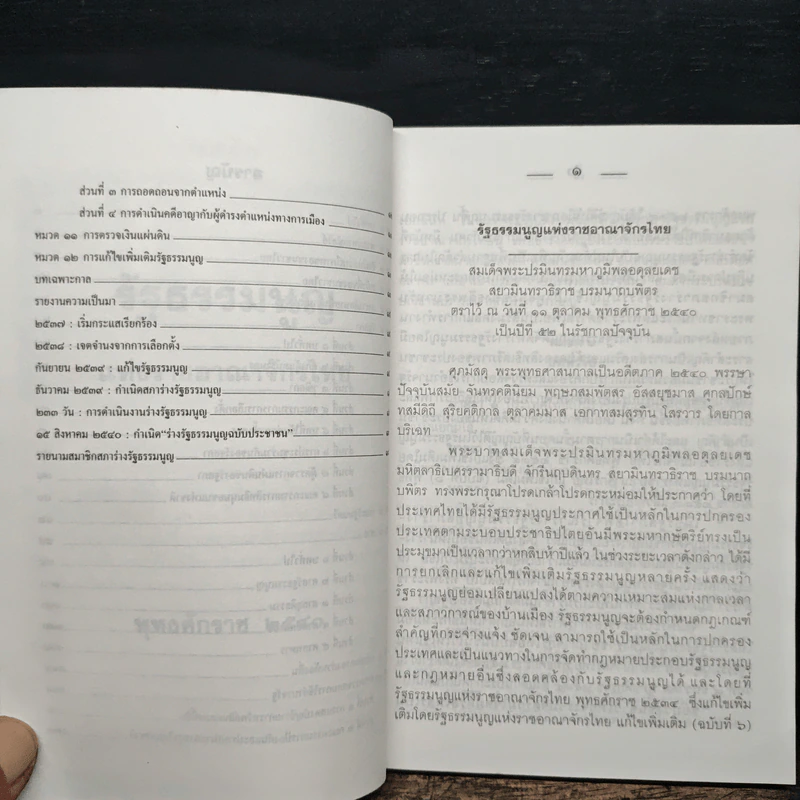 ส่วนที่ ๓ การถอดถอนจากตำแหน่ง
ส่วนที่ ๔ การดำเนินคดีอาญากับผู้ดำรงตำแหน่งทางการเมือง
หมวด ๑๑ การตรวจเงินแผ่นดิน
หมวด ๑๒ การแก้ไขเพิ่มเติมรัฐธรรมนูญ
บทเฉพาะกาล
รายงานความเป็นมา
๒๕๓๗ : เริ่มกระแสเรียกร้อง
๒๕๓๘ : เจตจำนงจากการเลือกตั้ง
กันยายน ๒๕๓๙ : แก้ไขรัฐธรรมนูญ
ธันวาคม ๒๕๓๙ : กำเนิดสภาร่างรัฐธรรมนูญ
๒๓๓ วัน : การดำเนินงานร่างรัฐธรรมนูญ
๑๕ สิงหาคม ๒๕๔๐ : กำเนิด"ร่างรัฐธรรมนูญฉบับประชาชน"
รายนามสมาชิกสภาร่างรัฐธรรมนูญ
๑
รัฐธรรมนูญแห่งราชอาณาจักรไทย
สมเด็จพระปรมินทรมหาภูมิพลอดุลยเดช
สยามินทราธิราช บรมนาถบพิตร
ตราไว้ ณ วันที่ ๑๑ ตุลาคม พุทธศักราช ๒๕๔๐
เป็นปีที่ ๕๒ ในรัชกาลปัจจุบัน
ศุภมัสดุ พระพุทธศาสนกาลเป็นอดีตภาค ๒๕๔๐ พรรษา
ปัจจุบันสมัย จันทรคตินิยม พฤษภสมพัตสร อัสสยุชมาส ศุกลปักษ์
ทสมีดิถี สุริยคติกาล ตุลาคมมาส เอกาทสมสุรทิน โสรวาร โดยกาล
บริเฉท
พระบาทสมเด็จพระปรมินทรมหาภูมิพลอดุลยเดช
มหิตลาธิเบศรรามาธิบดี จักรีนฤบดินทร สยามินทราธิราช บรมนาถ
บพิตร ทรงพระกรุณาโปรดเกล้าโปรดกระหม่อมให้ประกาศว่า โดยที่
ประเทศไทยได้มีรัฐธรรมนูญประกาศใช้เป็นหลักในการปกครอง
ประเทศตามระบอบประชาธิปไตยอันมีพระมหากษัตริย์ทรงเป็น
ประมุขมาเป็นเวลากว่าหกสิบห้าปีแล้ว ในช่วงระยะเวลาดังกล่าว ได้มี
การยกเลิกและแก้ไขเพิ่มเติมรัฐธรรมนูญหลายครั้ง แสดงว่า
รัฐธรรมนูญย่อมเปลี่ยนแปลงได้ตามความเหมาะสมแห่งกาลเวลา
และสภาวการณ์ของบ้านเมือง รัฐธรรมนูญจะต้องกำหนดกฎเกณฑ์
สำคัญที่กระจ่างแจ้ง ชัดเจน สามารถใช้เป็นหลักในการปกครอง
ประเทศและเป็นแนวทางในการจัดทำกฎหมายประกอบรัฐธรรมนูญ
และกฎหมายอื่นซึ่งสอดคล้องกับรัฐธรรมนูญได้ และโดยที่
รัฐธรรมนูญแห่งราชอาณาจักรไทย พุทธศักราช ๒๕๓๔ ซึ่งแก้ไขเพิ่ม
เติมโดยรัฐธรรมนูญแห่งราชอาณาจักรไทย แก้ไขเพิ่มเติม (ฉบับที่ ๖)